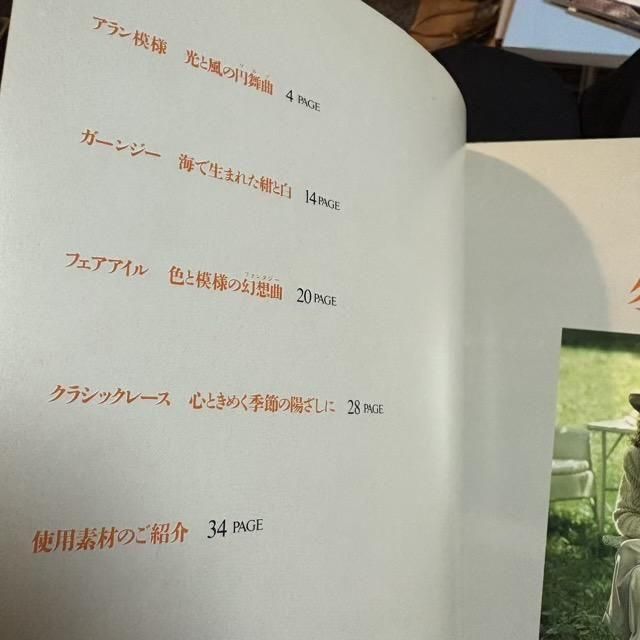 アラン模様 光と風の円舞曲 4 PAGE
ガーンジー 海で生まれた紺と白 14 PAGE
フェアアイル 色と模様の幻想曲 20 PAGE
クラシックレース 心ときめく季節の陽ざしに 28 PAGE
使用素材のご紹介 34 PAGE